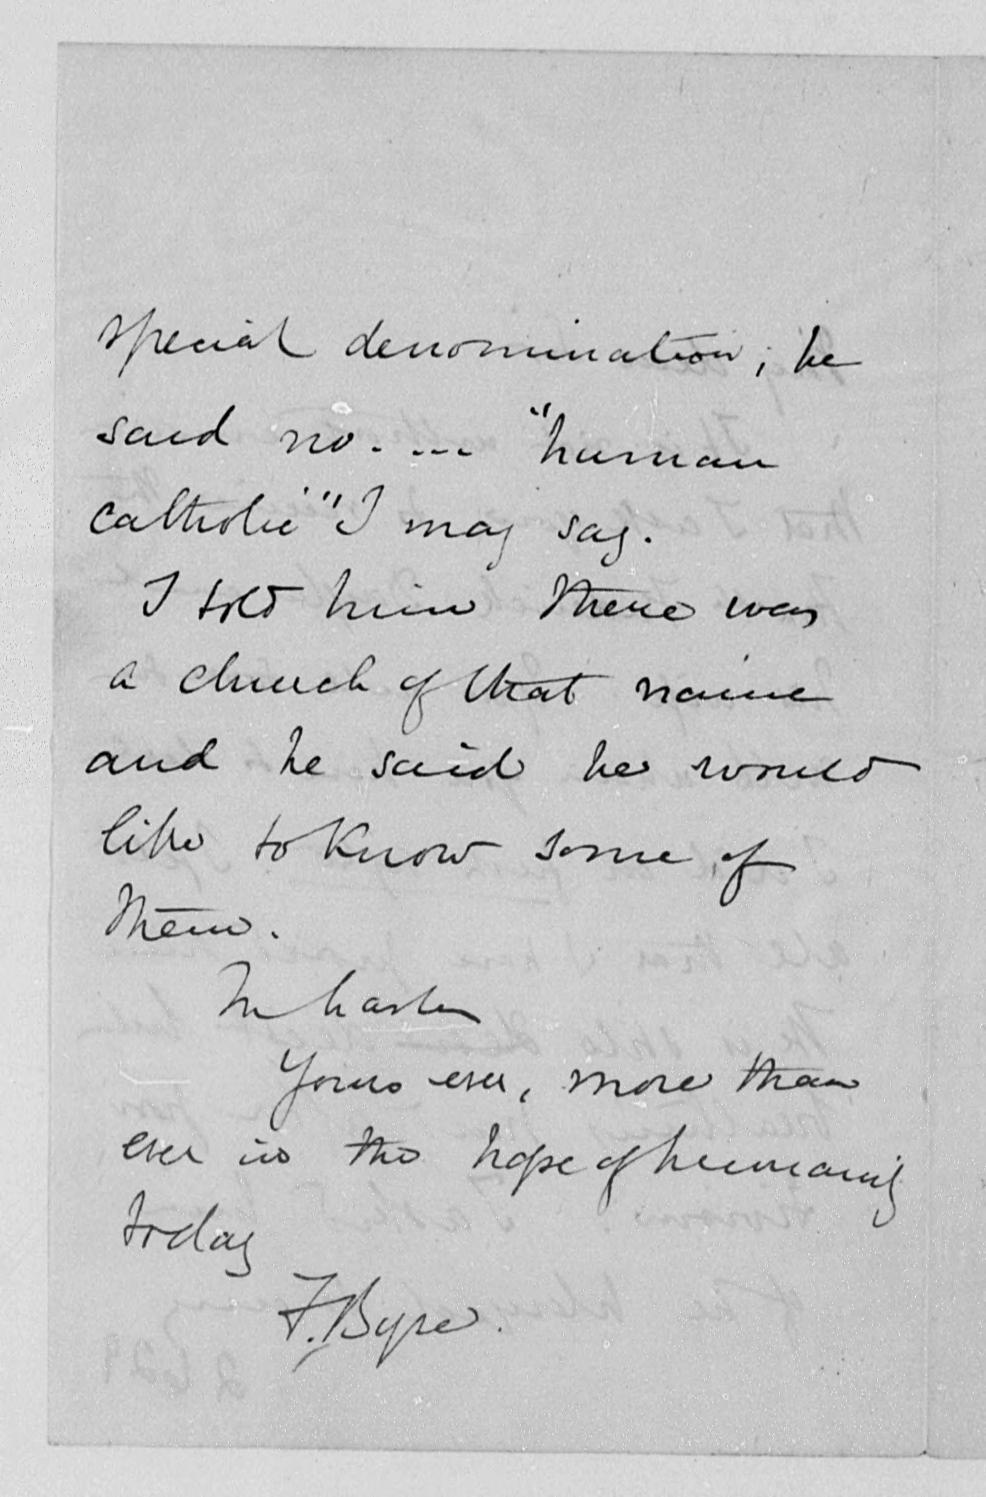 special denomination; he
said no. ... "human
catholic" I may say.
I told him there was
a church of that name
and he said he would
like to know some of
them.
In haste
Yours ever, more than
ever in the hope of humanity
today